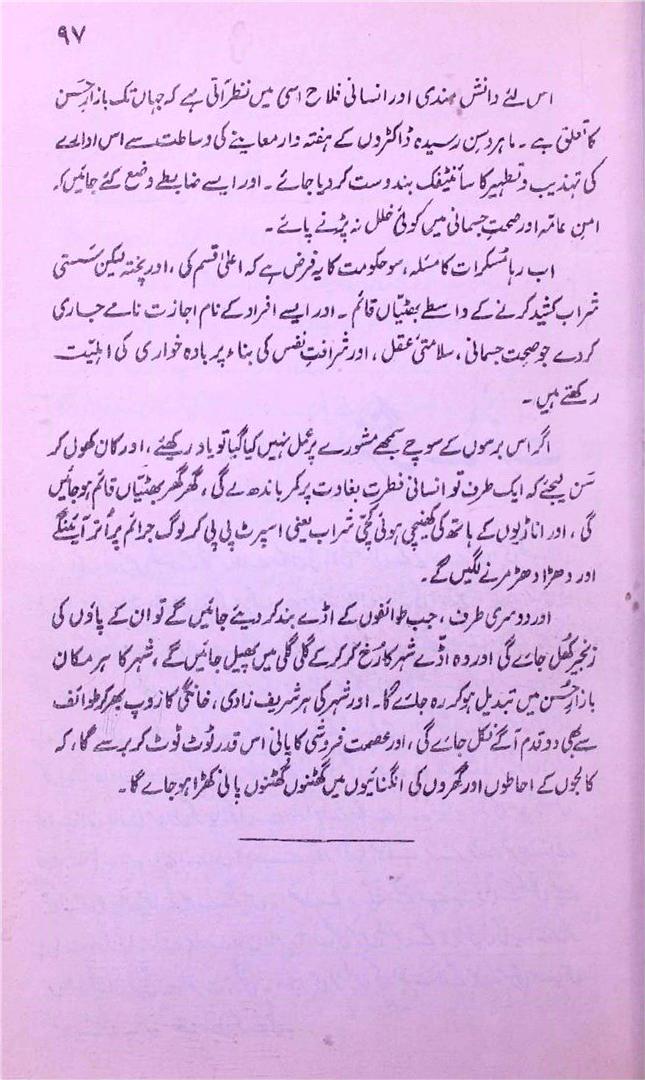 ۹۷
اس لئے دانش مندی اور انسانی فلاح اسی میں نظر آتی ہے کہ جہاں تک بازارِ حسن
کا تعلق ہے ۔ ماہر و سن رسیدہ ڈاکٹروں کے ہفتہ وار معاینے کی وساطت سے اس ادارے
کی تہذیب و تطہیر کا سائنٹیفک بندوست کر دیا جائے ۔ اور ایسے ضابطے وضع کئے جائیں کہ
امنِ عامّہ اور صحتِ جسمانی میں کوئی خلل نہ پڑنے پائے ۔
اب رہا مُسکرات کا مسئلہ ، سو حکومت کا یہ فرض ہے کہ اعلیٰ قسم کی ، اور پختہ لیکن سَستی
شراب کشید کرنے کے واسطے بھٹیّاں قائم ۔ اور ایسے افراد کے نام اجازت نامے جاری
کر دے جو صحتِ جسمانی ، سلامتیٔ عقل ، اور شرافتِ نفس کی بناء پر بادہ خواری کی اہلیّت
رکھتے ہیں ۔
اگر اس برسوں کے سوچے سمجھے مشورے پر عمل نہیں کیا گیا تو یاد رکھیئے ، اور کان کھول کر
سُن لیجئے کہ ایک طرف تو انسانی فطرت بغاوت پر کمر باندھ لے گی ، گھر گھر بھٹیّاں قائم ہو جائیں
گی ، اور اناڑیوں کے ہاتھ کی کھینچی ہوئی کچّی شراب یعنی اسپرٹ پی پی کر لوگ جرائم پر اُتر آئینگے
اور دھڑا دھڑ مرنے لگیں گے ۔
اور دوسری طرف ، جب طوائفوں کے اڈے بند کر دیئے جائیں گے تو ان کے پاؤں کی
زنجیر کُھل جائے گی اور وہ اڈّے شہر کا رُخ کر کر کے گلی گلی میں پھیل جائیں گے ، شہر کا ہر مکان
بازارِ حُسن میں تبدیل ہو کر رہ جائے گا ۔ اور شہر کی ہر شریف زادی ، خانگی کا روپ بھر کر طوائف
سے بھی دو قدم آگے نکل جائے گی ، اور عصمت فروشی کا پانی اس قدر ٹوٹ ٹوٹ کر برسے گا ، کہ
کالجوں کے احاطوں اور گھروں کی انگنائیوں میں گھٹنوں گھٹنوں پانی کھڑا ہو جائے گا ۔